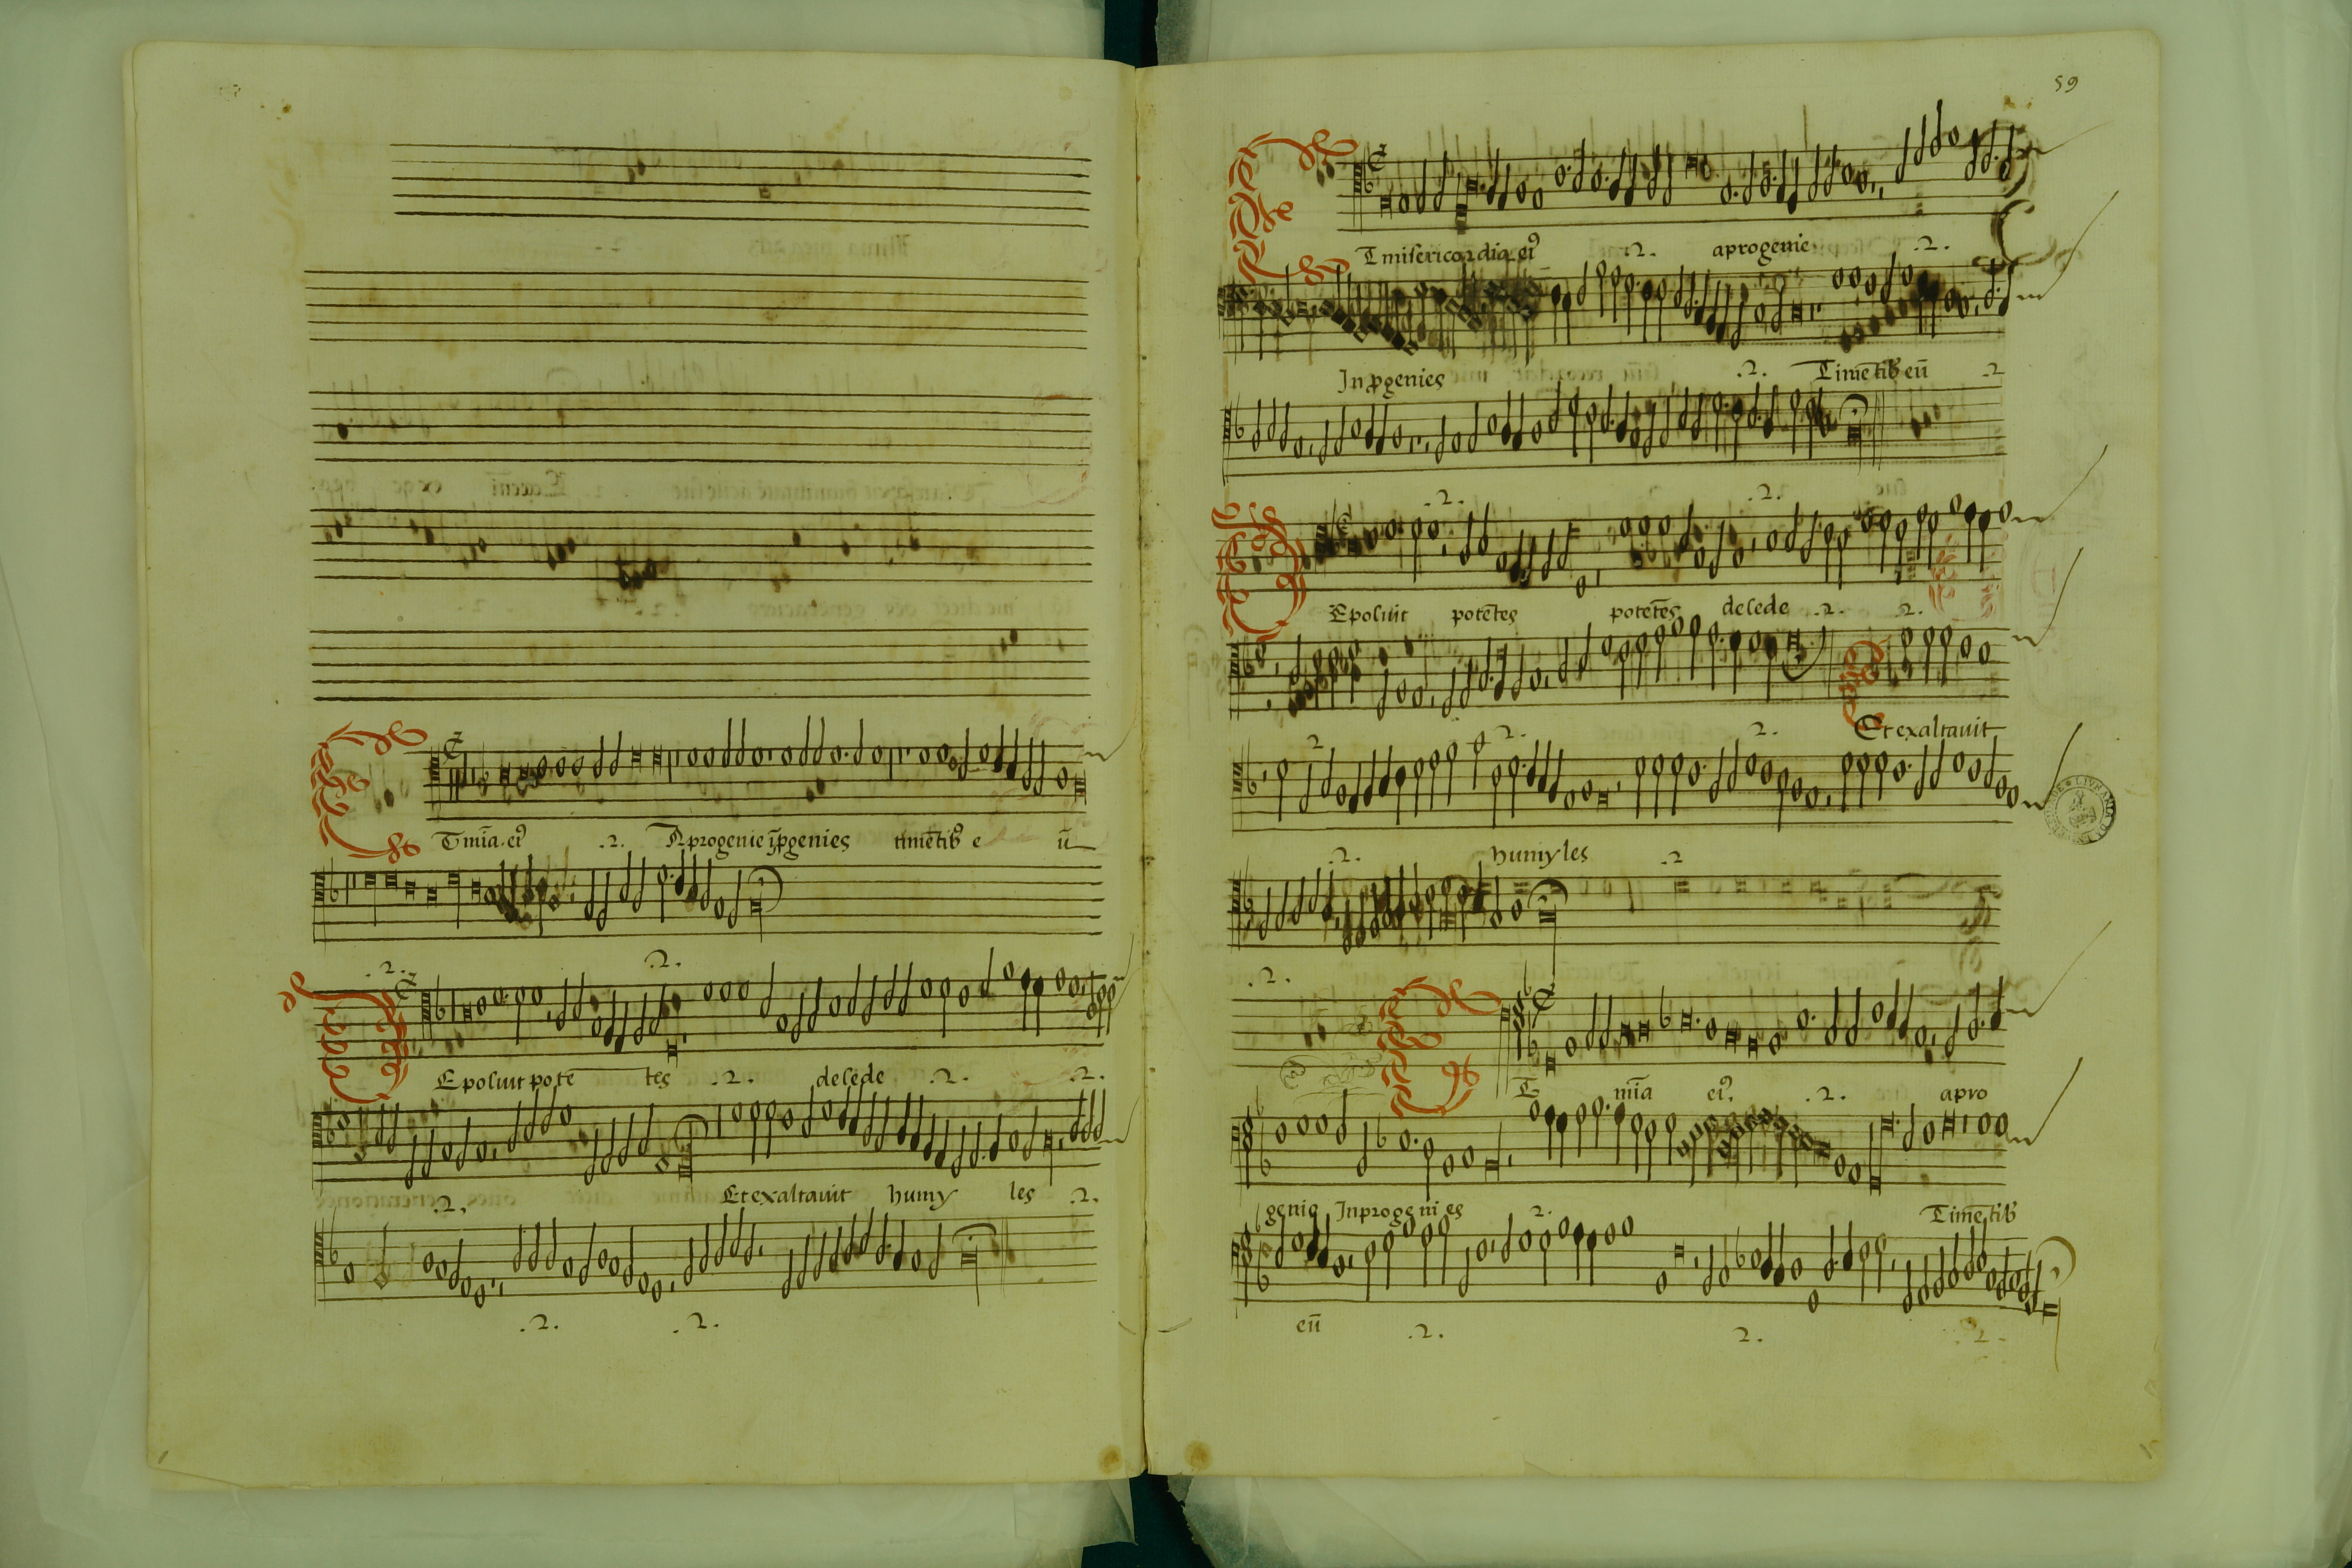 T mīa. ei⁹ .2. A progenie īꝓgenies timētibꝰ e ū
.2. .2.
Epoluit pote tes .2. desede .2. .2.
.2. Et exaltauit humy les .2.
.2. .2.
59
T misericordia ei⁹ .2. aprogenie .2.
In ꝓgenies .2. Timētibꝰ eū 2
.2. .2.
Epoluit potētes potetēs desede .2. 2.
Et exaltauit
2 2. 2.
.2. humyles .2
.2.
T mīa ei⁹. .2. apro
genie Inprogenies 2. Timētibꝰ
eū .2. 2. 2.